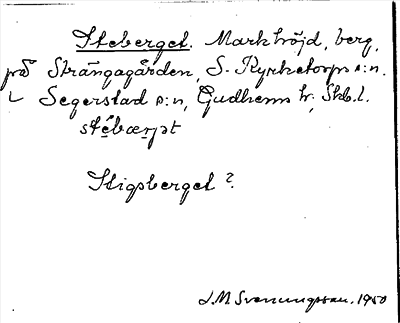 Steberget. Markhöjd, berg,
på Strängagården, S. Kyrketorps s:n.
L Segerstad s:n, Gudhems hr, Skb.l.
stébærjət
Stigsberget?
J.M Svenungsson. 1950